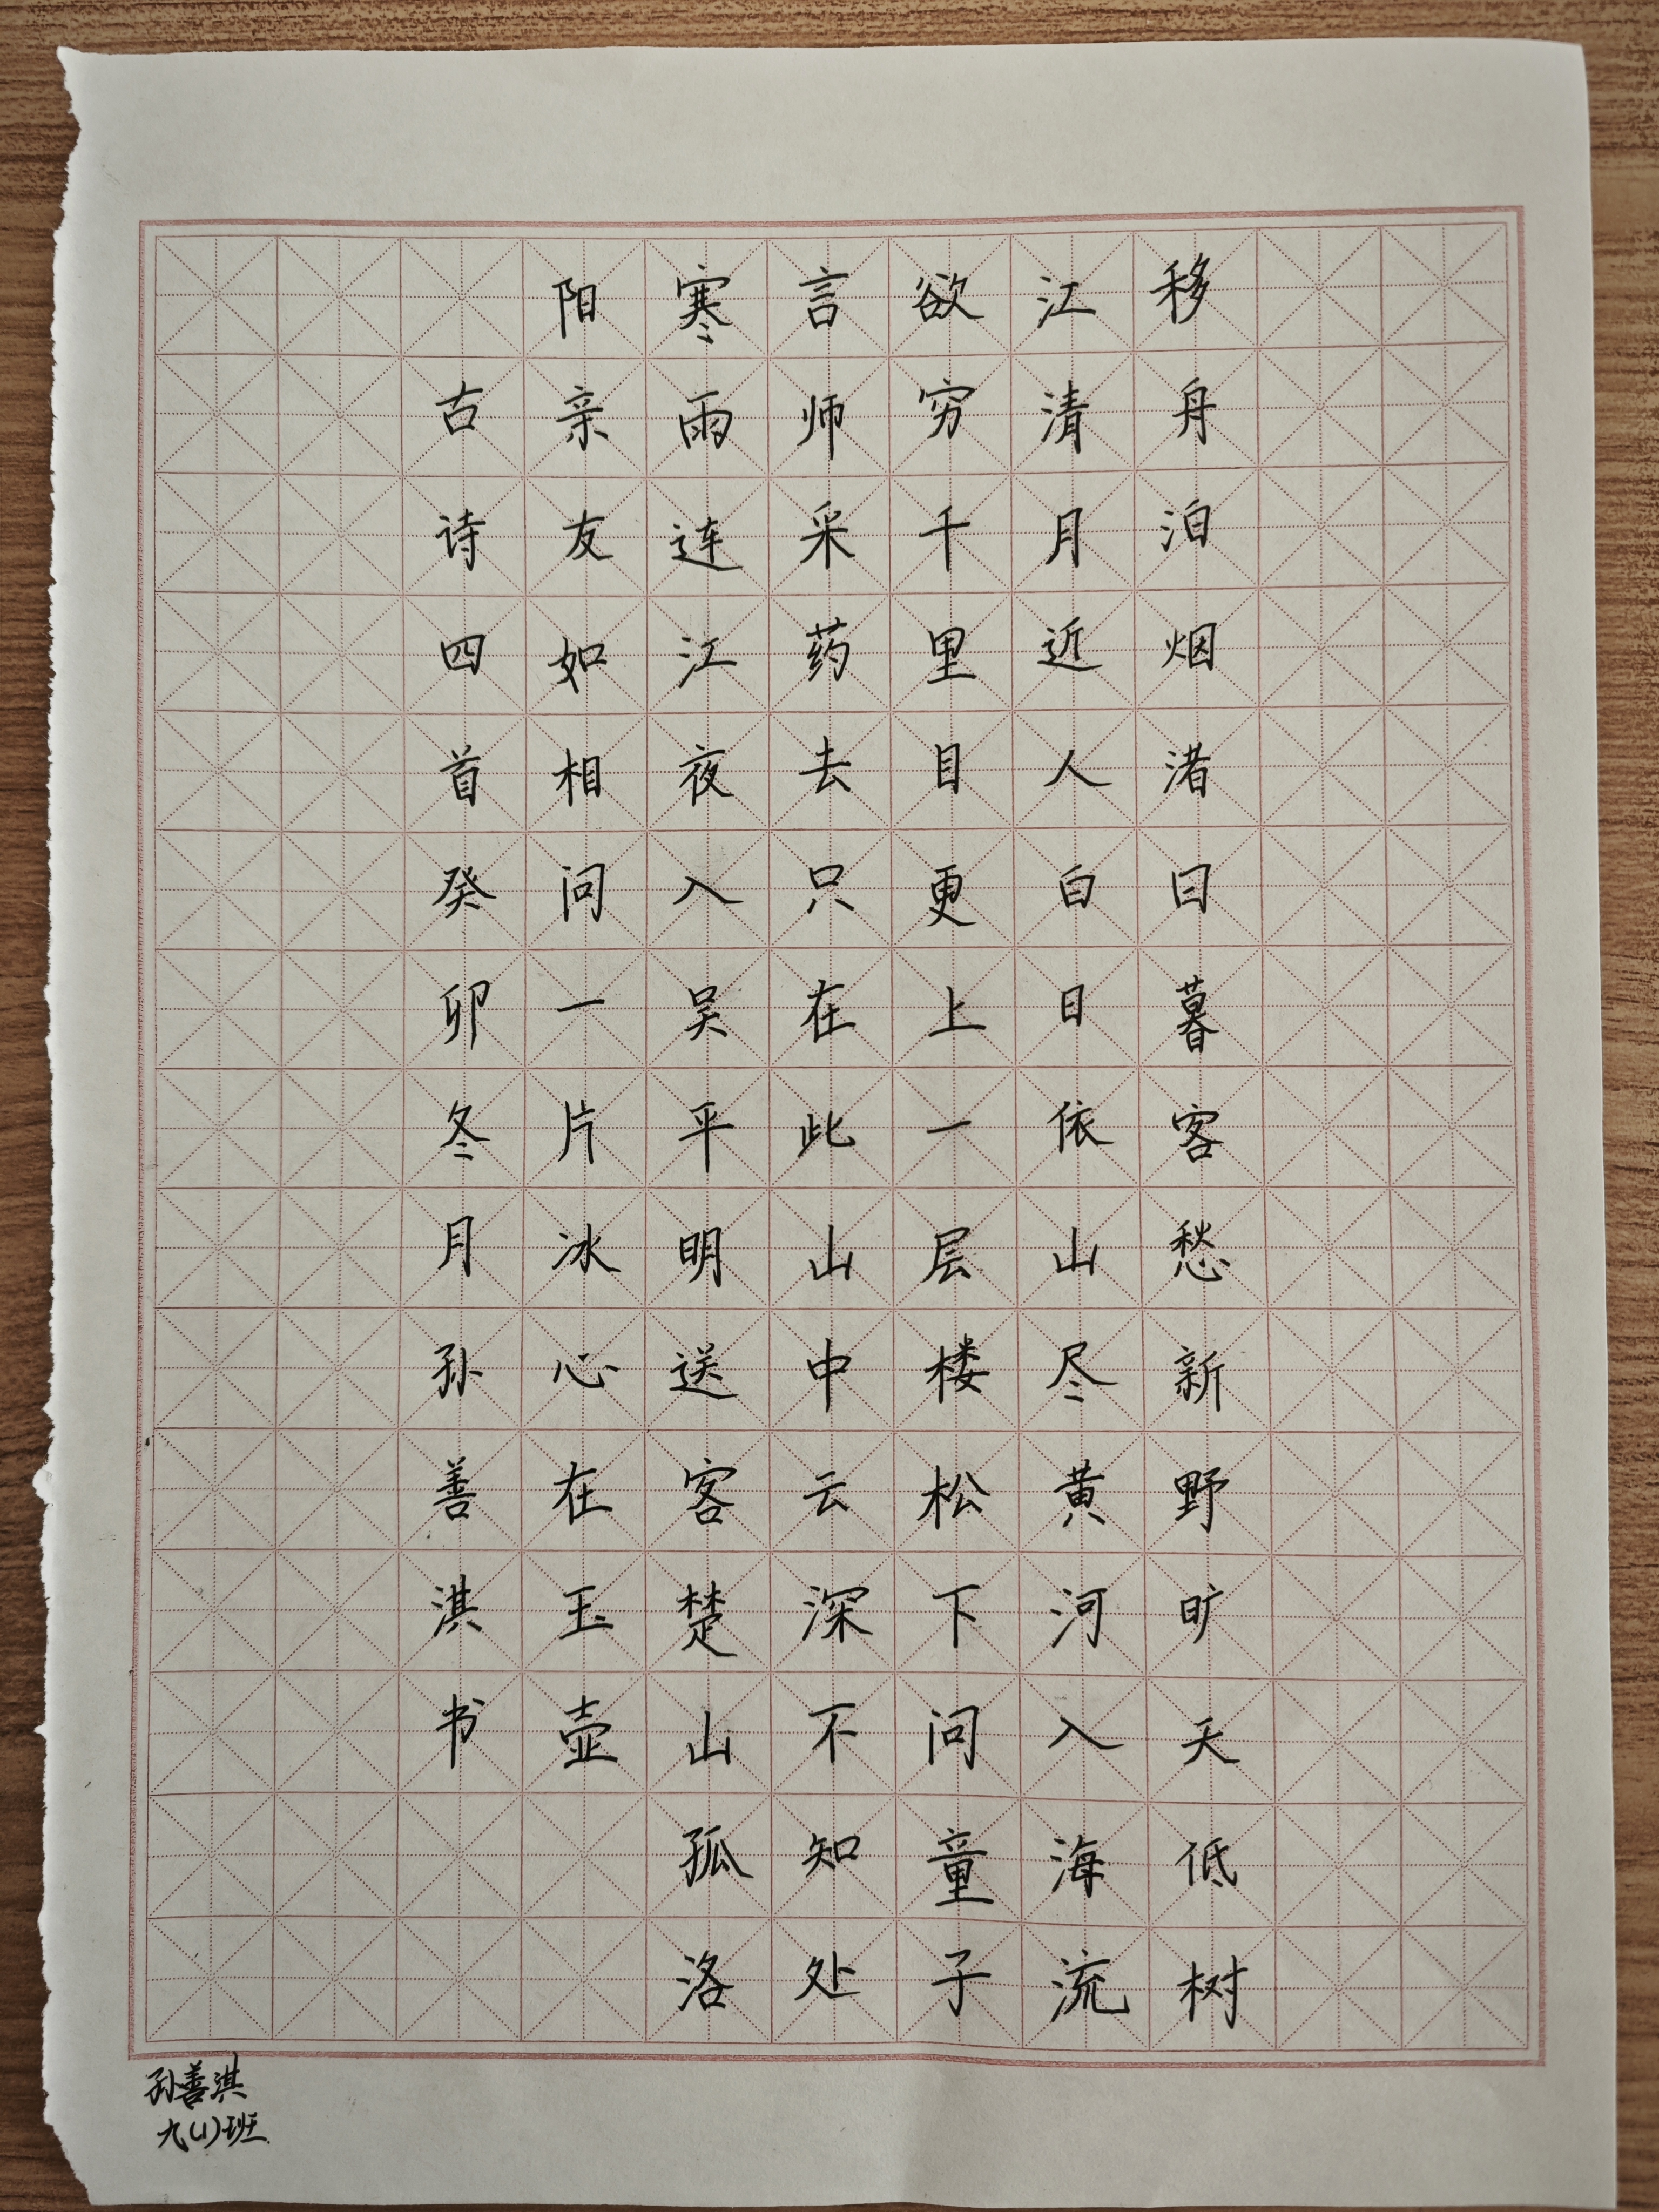 移舟泊烟渚日暮客愁新野旷天低树
江清月近人白日依山尽黄河入海流
欲穷千里目更上一层楼松下问童子
言师采药去只在此山中云深不知处
寒雨连江夜入吴平明送客楚山孤洛
阳亲友如相问一片冰心在玉壶
古诗四首癸卯冬月孙善淇书
孙善淇
九(1)班